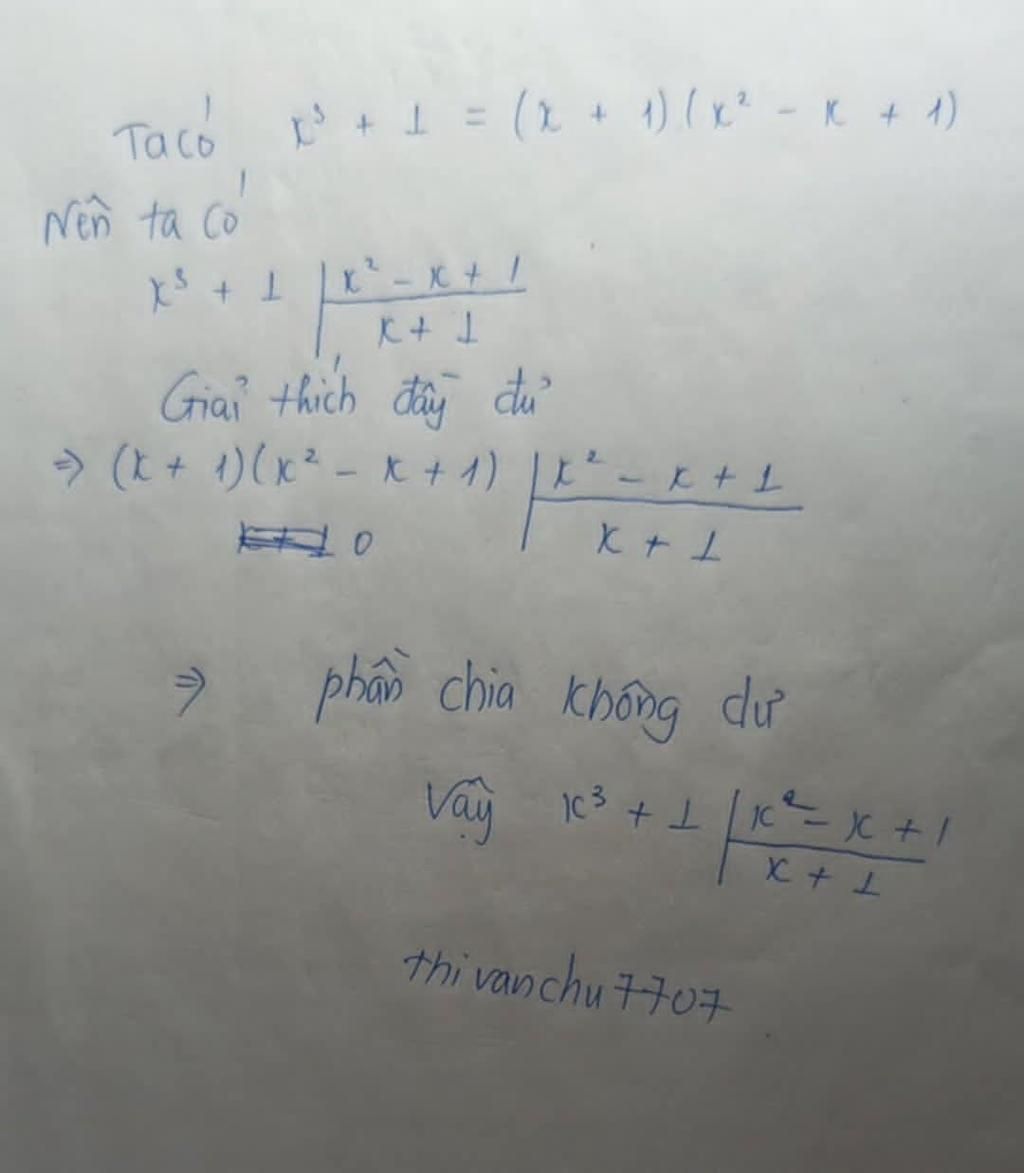 Ta có x³ + 1 = (x + 1)(x² - x + 1)
Nên ta có
x³ + 1 | x² - x + 1
x + 1
Giải thích đầy đủ
⇒ (x + 1)(x² - x + 1) | x² - x + 1
0 x + 1
⇒ phần chia không dư
Vậy x³ + 1 | x² - x + 1
x + 1
thivanchu7707